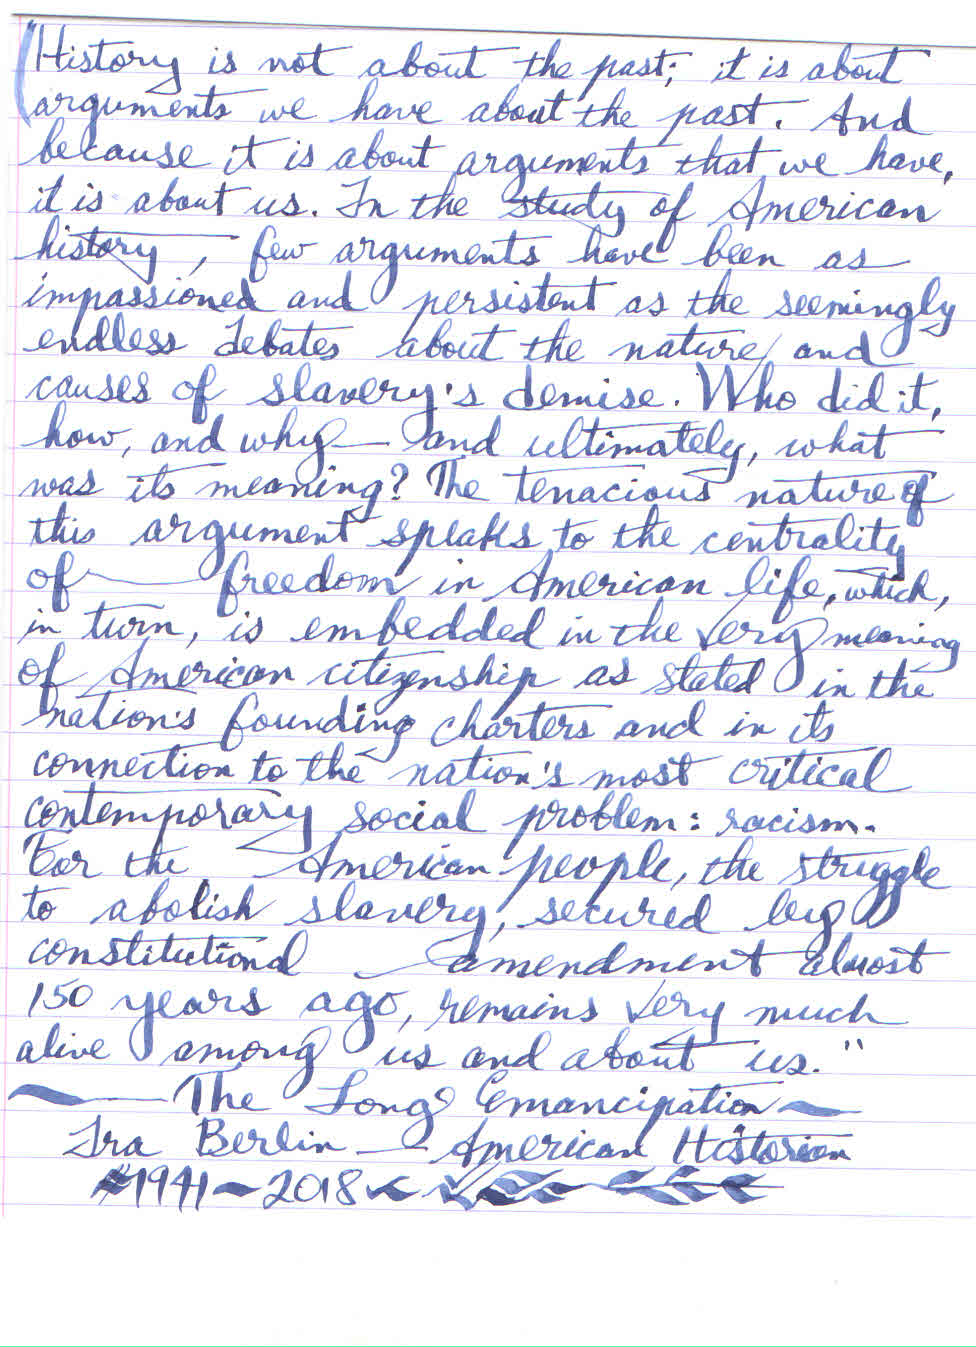 "History is not about the past; it is about
arguments we have about the past. And
because it is about arguments that we have,
it is about us. In the study of American
history, few arguments have been as
impassioned and persistent as the seemingly
endless debates about the nature and
causes of slavery's demise. Who did it,
how, and why — and ultimately, what
was its meaning? The tenacious nature of
this argument speaks to the centrality
of freedom in American life, which,
in turn, is embedded in the very meaning
of American citizenship as stated in the
nation's founding charters and in its
connection to the nation's most critical
contemporary social problem: racism.
For the American people, the struggle
to abolish slavery, secured by
constitutional amendment almost
150 years ago, remains very much
alive among us and about us."
— The Long Emancipation ~
Ira Berlin — American Historian
1941 ~ 2018